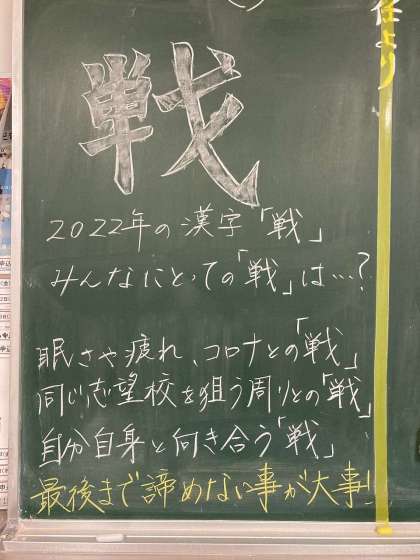 戦
2022年の漢字「戦」
みんなにとっての「戦」は…?
眠さや疲れ、コロナとの「戦」
同じ志望校を狙う周りとの「戦」
自分自身と向き合う「戦」
最後まで諦めない事が大事!
任より